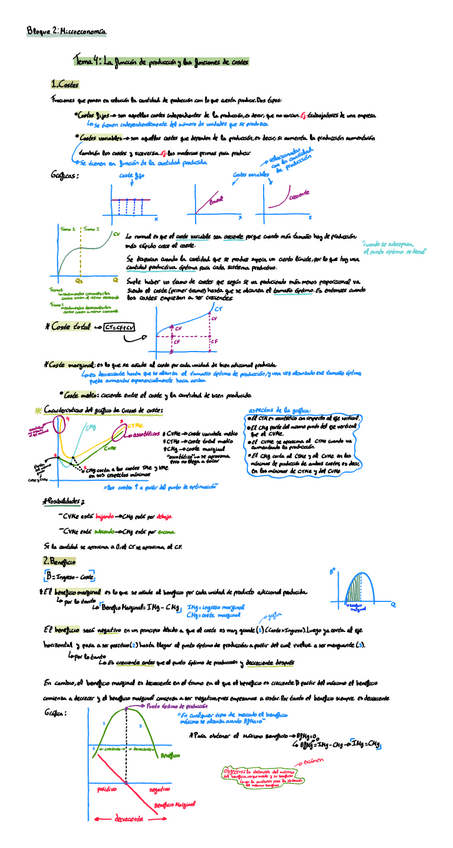 Bloque 2: Microeconomía
Tema 4: La función de producción y las funciones de costes
1. Costes
Funciones que ponen en relación la cantidad de producción con lo que cuesta producir. Dos tipos:
*Costes fijos → son aquellos costes independientes de la producción, es decir, que no varían. Ej: trabajadores de una empresa
↳ Se tienen independientemente del número de unidades que se produzcan
*Costes variables → son aquellos costes que dependen de la producción, es decir, si aumenta la producción aumentarán
también los costes y viceversa. Ej: las materias primas para producir
↳ Se tienen en función de la cantidad producida
relacionados con la cantidad de producción
Gráficas:
Coste fijo
Costes variables
lineal
creciente
x
x
x
Tramo 1 Tramo 2
CV
Lo normal es que el coste variable sea creciente porque cuanto más tamaño hay de producción
más rápido crece el coste.
cantidad productiva óptima para cada sistema productivo.
Suele haber un tramo de costes que según se va produciendo más crece proporcional va
siendo el coste (primer tramo) hasta que se alcanza el tamaño óptimo. Es entonces cuando
los costes empiezan a ser crecientes
"cuando se sobrepasa el punto óptimo se tiene"
* Coste total → CT=CF+CV
CT
CV
CV
CF
CF
x
*Coste marginal: es lo que se añade al coste por cada unidad de bien adicional producida
↳ es decreciente hasta que se alcanza el tamaño óptimo de producción, y una vez alcanzado ese tamaño óptimo
puede aumentar exponencialmente hacia arriba
*Coste medio: cociente entre el coste y la cantidad de bien producido
* Características del gráfico de curvas de costes:
CMg
CTMe
CVMe
asintóticos
* CVMe → coste variable medio
* CTMe → coste total medio
* CMg → coste marginal
"asintótico" → se aproxima pero no llega a tocar
CMg corta a los costes TMe y VMe en sus respectivos mínimos
"Los costes ↑ a partir del punto de optimación"
aspectos de la gráfica:
* El CTMe es asintótico con respecto al eje vertical
* El CMg parte del mismo punto del eje vertical que el CVMe
* El CVMe se aproxima al CTMe cuando va aumentando la producción
* El CMg corta al CTMe y al CVMe en los mínimos de producción de ambos costes, es decir, en los mínimos de CTMe y del CVMe
*Posibilidades:
- CVMe está bajando → CMg está por debajo
- CVMe está subiendo → CMg está por encima
Si la cantidad se aproxima a 0, el CT se aproxima al CF.
2. Beneficio
B = Ingreso - Coste
* El beneficio marginal es lo que se añade al beneficio por cada unidad de producto adicional producida
↳ por lo tanto
↳ Beneficio Marginal: IMg - CMg
IMg = ingreso marginal
CMg = coste marginal
B
Q
beneficio marginal
gráfica
El beneficio será negativo en un principio debido a que el coste es muy grande (1) (Coste>Ingreso). Luego ya corta al eje
horizontal y pasa a ser positivo (2) hasta llegar al punto óptimo de producción a partir del cual vuelve a ser menguante (3).
↳ por lo tanto
↳ Es creciente antes que el punto óptimo de producción y decreciente después
En cambio, el beneficio marginal es decreciente en el tramo en el que el beneficio es creciente. A partir del máximo el beneficio
comienza a decrecer y el beneficio marginal comienza a ser negativo, pues empezamos a restar. Por tanto el beneficio siempre es decreciente
Gráfica:
Punto óptimo de producción
Beneficio
positivo
negativo
Beneficio Marginal
decreciente
"En cualquier tipo de mercado el beneficio máximo se alcanza cuando BfMg=0"
*Para obtener el máximo beneficio → BfMg=0
↳ BfMg = IMg - CMg → IMg = CMg
examen